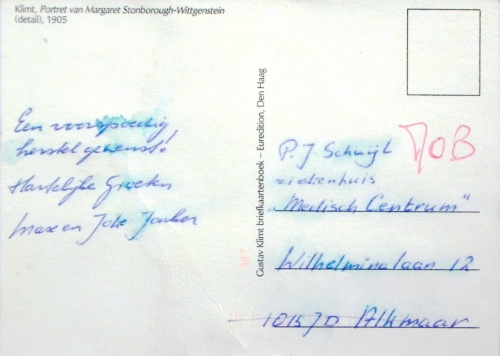 Klimt, Portret van Margaret Stonborough-Wittgenstein
(detail), 1905
Een voorspoedig
herstel gewenst!
Hartelijke Groeten
Max en Joke
Gustav Klimt briefkaartenboek – Euredition, Den Haag
P.J. Schuijt
ziekenhuis
„Medisch Centrum"
Wilhelminalaan 12
Alkmaar